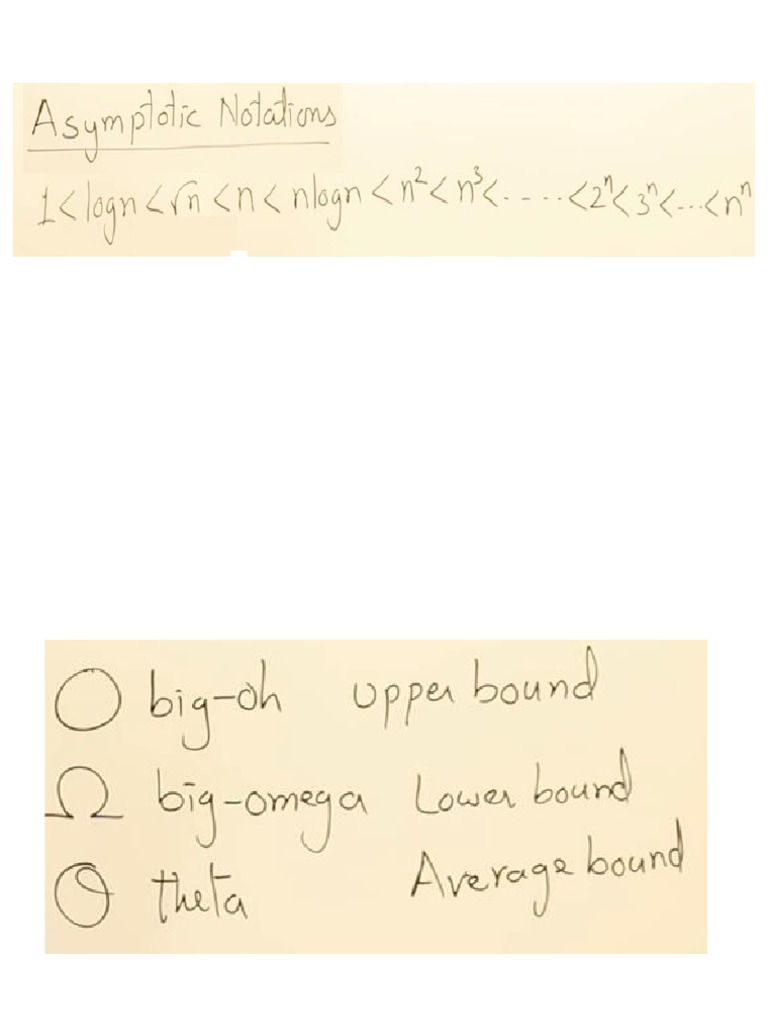 Asymptotic Notations
1 < logn < √n < n < nlogn < n² < n³ < ..... < 2ⁿ < 3ⁿ < ... < nⁿ
O big-oh upper bound
Ω big-omega Lower bound
Θ theta Average bound